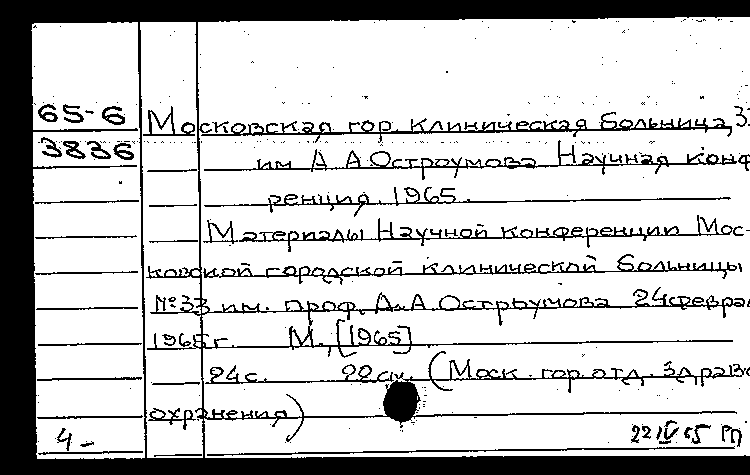 65-6
3836
Московская гор. клиническая больница, 33
им А. А Остроумова Научная конф
ренция. 1965.
Материалы Научной конференции Мос-
ковской городской клинической больницы
№33 им. проф. А.А.Остроумова 24феврал
1965г. М., [1965].
24с. 22см. (Моск. гор. отд. здраво
охранения)
4- 22 IV 65 РП